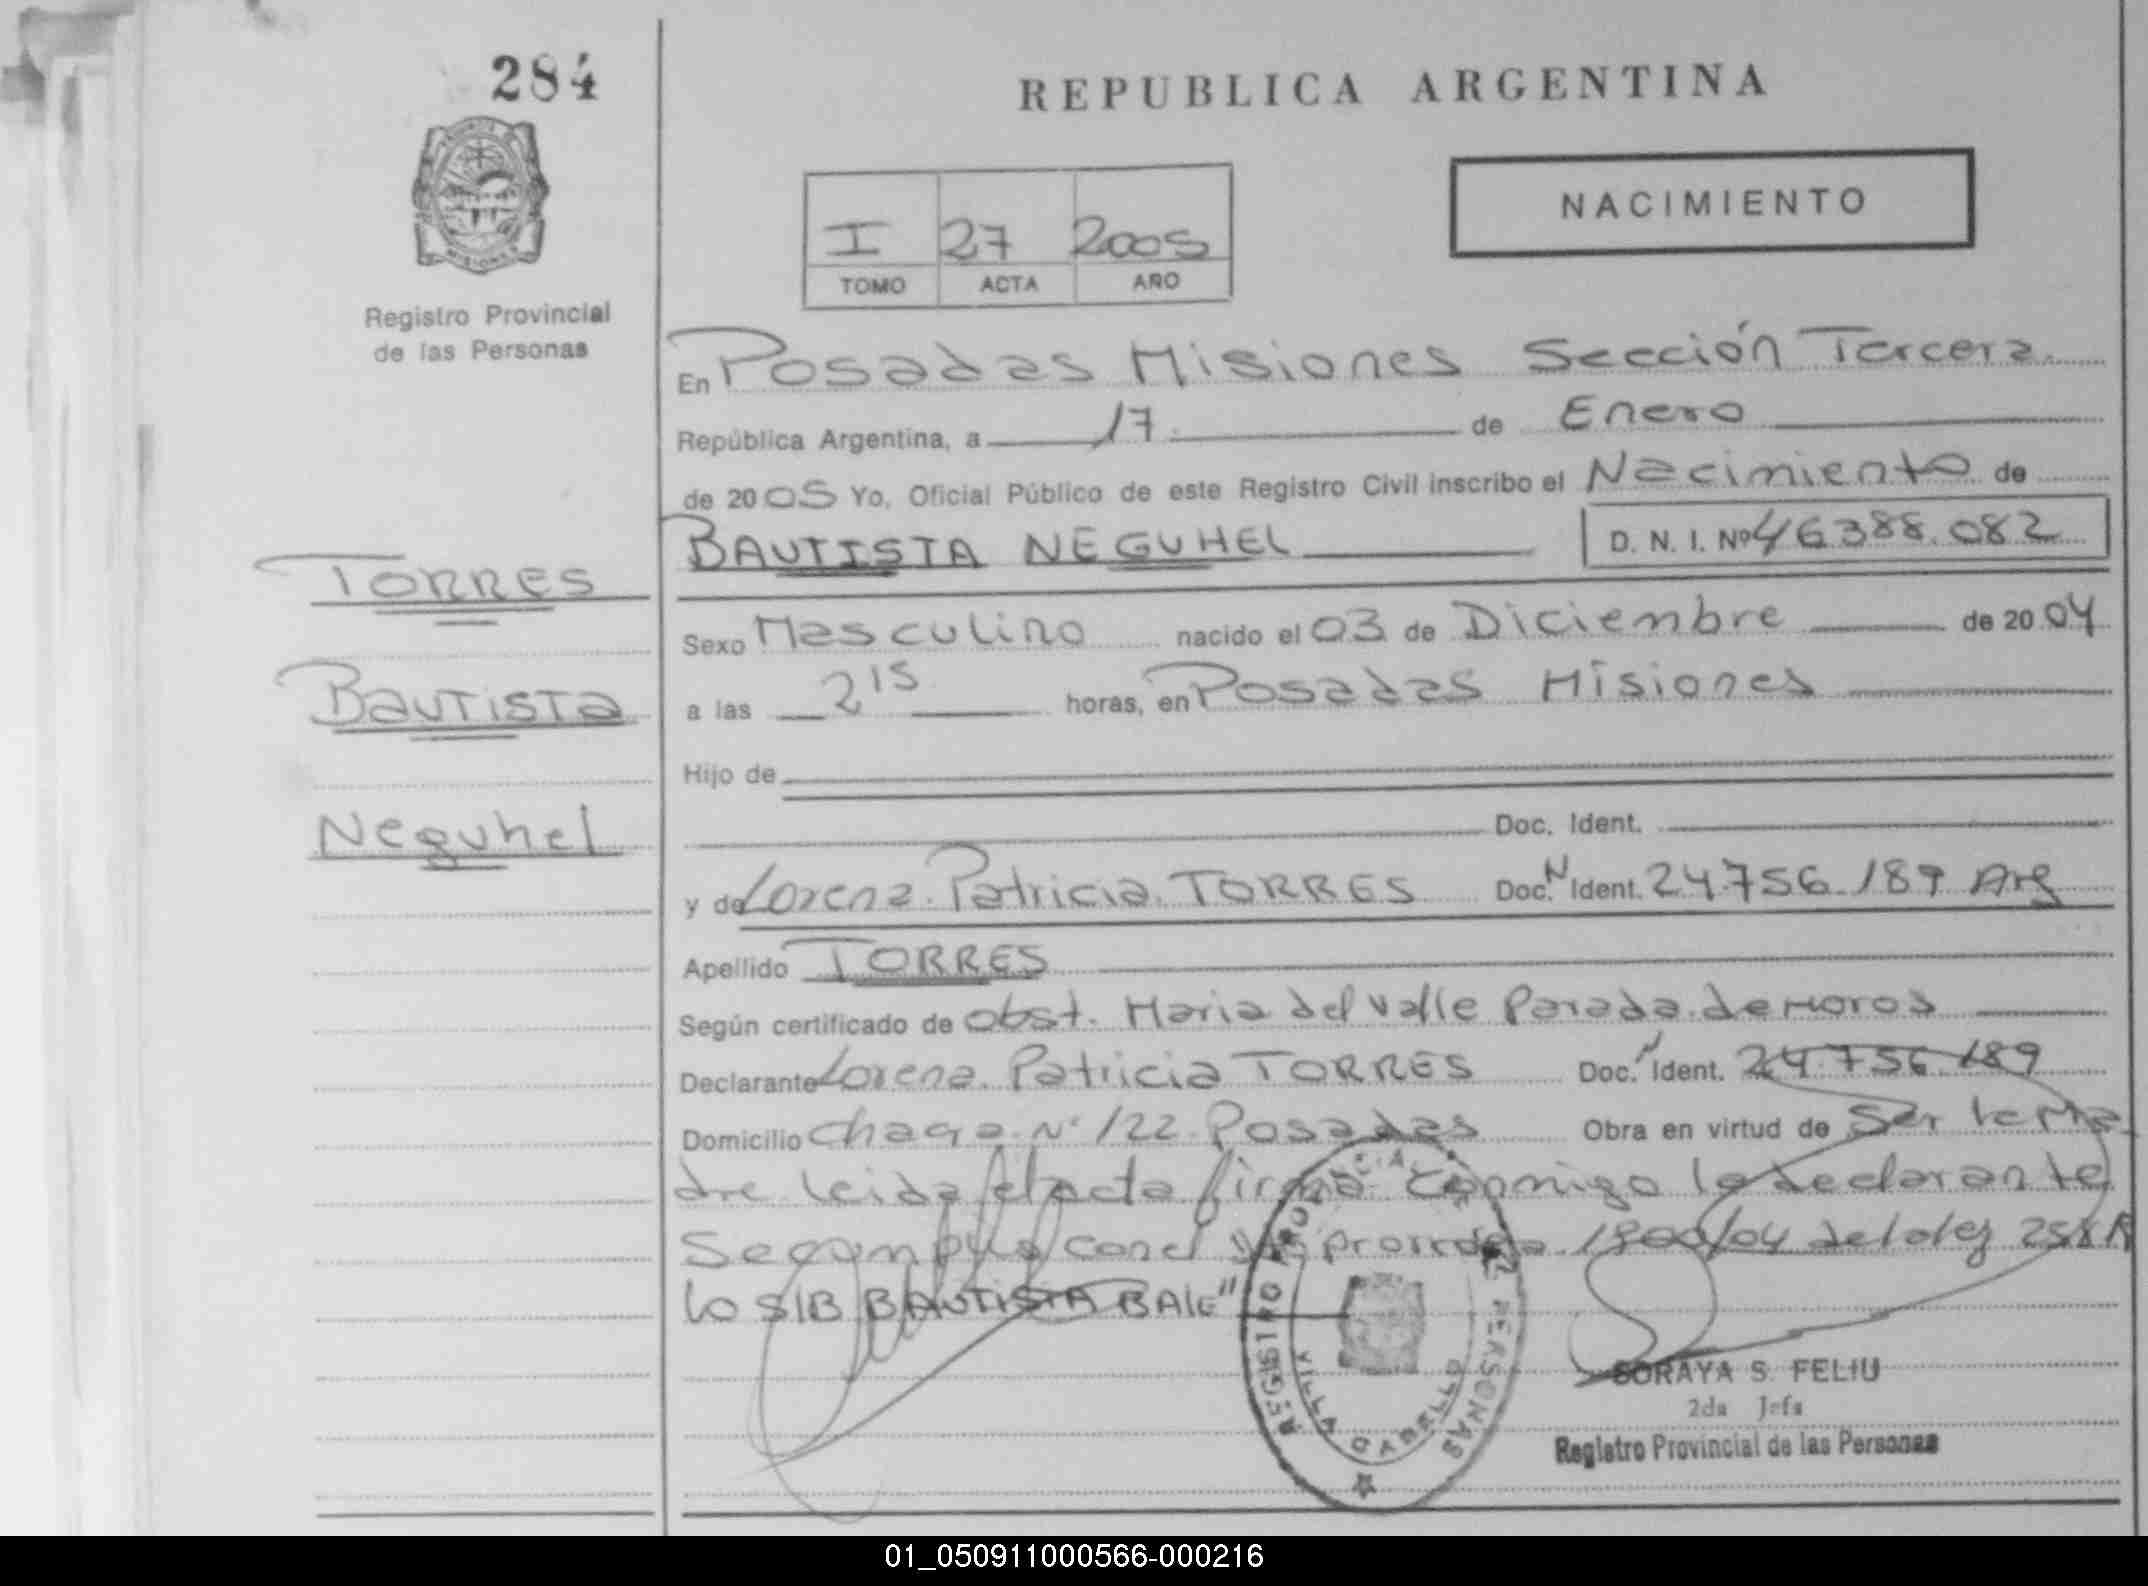 284
REPUBLICA ARGENTINA
NACIMIENTO
I 27 2005
TOMO ACTA AÑO
MISIONES
Registro Provincial
de las Personas
En Posadas Misiones Sección Tercera
República Argentina, a 17 de Enero
de 2005 Yo, Oficial Público de este Registro Civil inscribo el Nacimiento de
BAUTISTA NEGUHEL D. N. I. Nº 46388.082
Torres
Sexo Masculino nacido el 03 de Diciembre de 2004
Bautista
a las 2 15 horas, en Posadas Misiones
Hijo de
Neguhel
Doc. Ident.
y de Lorena Patricia TORRES Doc. N Ident. 24.756.189 Arg
Apellido TORRES
Según certificado de obst. Maria del Valle Parada de Moros
Declarante Lorena Patricia TORRES Doc. N Ident. 24.756.189
Domicilio Chacra Nº 122 Posadas Obra en virtud de Ser la Ma
dre leida el acta firma conmigo la declarante
Se cumple con el 1900/04 de la ley
lo S/B BAUTISTA BALE"
REGISTRO PROVINCIAL DE LAS PERSONAS
VILLA CABELLO
SORAYA S. FELIU
2da Jefa
Registro Provincial de las Personas
01_050911000566-000216